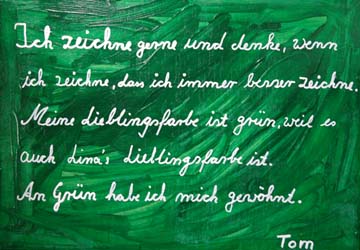 Ich zeichne gerne und denke, wenn
ich zeichne, dass ich immer besser zeichne.
Meine Lieblingsfarbe ist grün, weil es
auch Lina's Lieblingsfarbe ist.
An Grün habe ich mich gewöhnt.
Tom